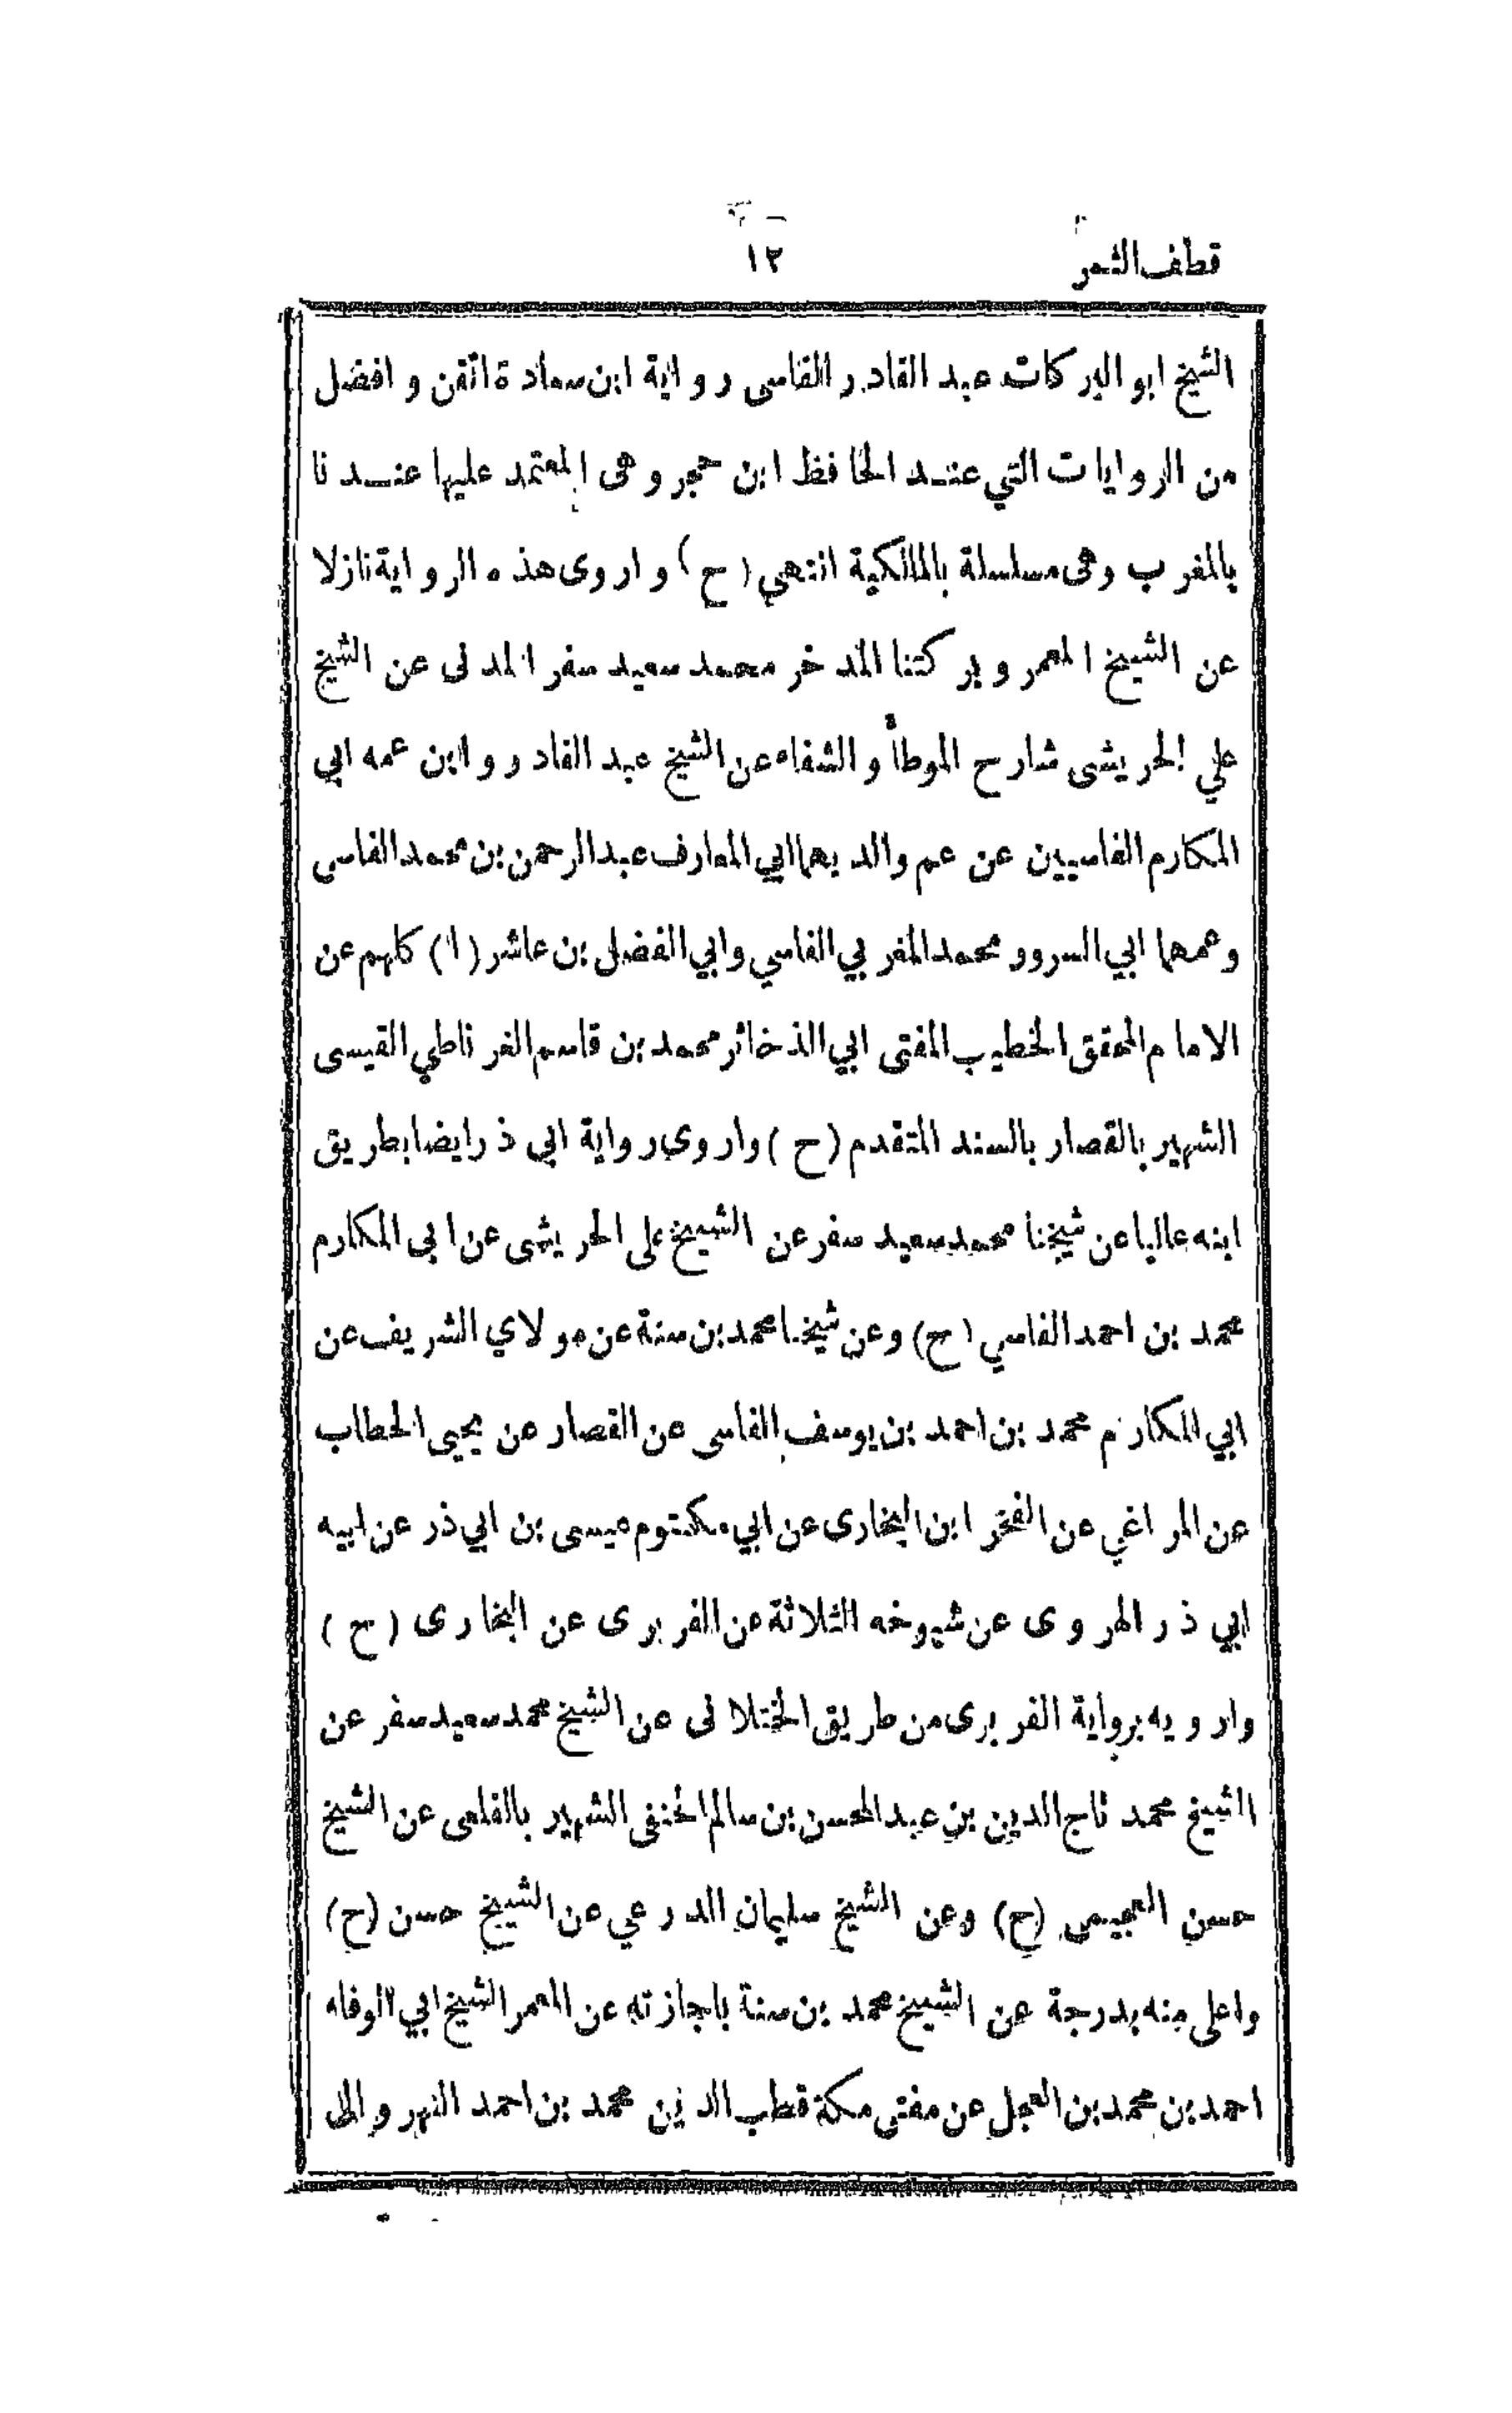 قطف الثمر
١٢
الشيخ ابو البركات عبد القادر الفاسى رواية ابن سعادة اتقن وافضل
من الروايات التي عند الحافظ ابن حجر وهى المعتمد عليها عندنا
بالمغرب وهى مسلسلة بالمالكية انتهى (ح) واروى هذه الرواية نازلا
عن الشيخ المعمر وبركتنا المدخر محمد سعيد سفر المدنى عن الشيخ
علي الحريشى شارح الموطأ والشفاء عن الشيخ عبد القادر وابن عمه ابي
المكارم الفاسيين عن عم والديهما ابي المعارف عبد الرحمن بن محمد الفاسى
وعمهما ابي السرور محمد المغربي الفاسي وابي الفضل بن عاشر (ا) كلهم عن
الامام المحقق الخطيب المفتى ابي الذخائر محمد بن قاسم الغرناطي القيسى
الشهير بالقصار بالسند المتقدم (ح) واروى رواية ابى ذر ايضا بطريق
ابنه عاليا عن شيخنا محمد سعيد سفر عن الشيخ على الحريشى عن ابى المكارم
محمد بن احمد الفاسي (ح) وعن شيخنا محمد بن سنة عن مولاي الشريف عن
ابي المكارم محمد بن احمد بن يوسف الفاسى عن القصار عن يحيى الحطاب
عن المراغي عن الفخر ابن البخارى عن ابي مكتوم عيسى بن ابي ذر عن ابيه
ابي ذر الهروى عن شيوخه الثلاثة عن الفربرى عن البخارى (ح)
وارويه برواية الفربرى من طريق الختلانى عن الشيخ محمد سعيد سفر عن
الشيخ محمد تاج الدين بن عبد المحسن بن سالم الحنفى الشهير بالقلعى عن الشيخ
حسن العجيمى (ح) وعن الشيخ سليمان الدرعي عن الشيخ حسن (ح)
واعلى منه بدرجة عن الشيخ محمد بن سنة باجازته عن المعمر الشيخ ابي الوفاء
احمد بن محمد بن العجل عن مفتى مكة قطب الدين محمد بن احمد النهروالى